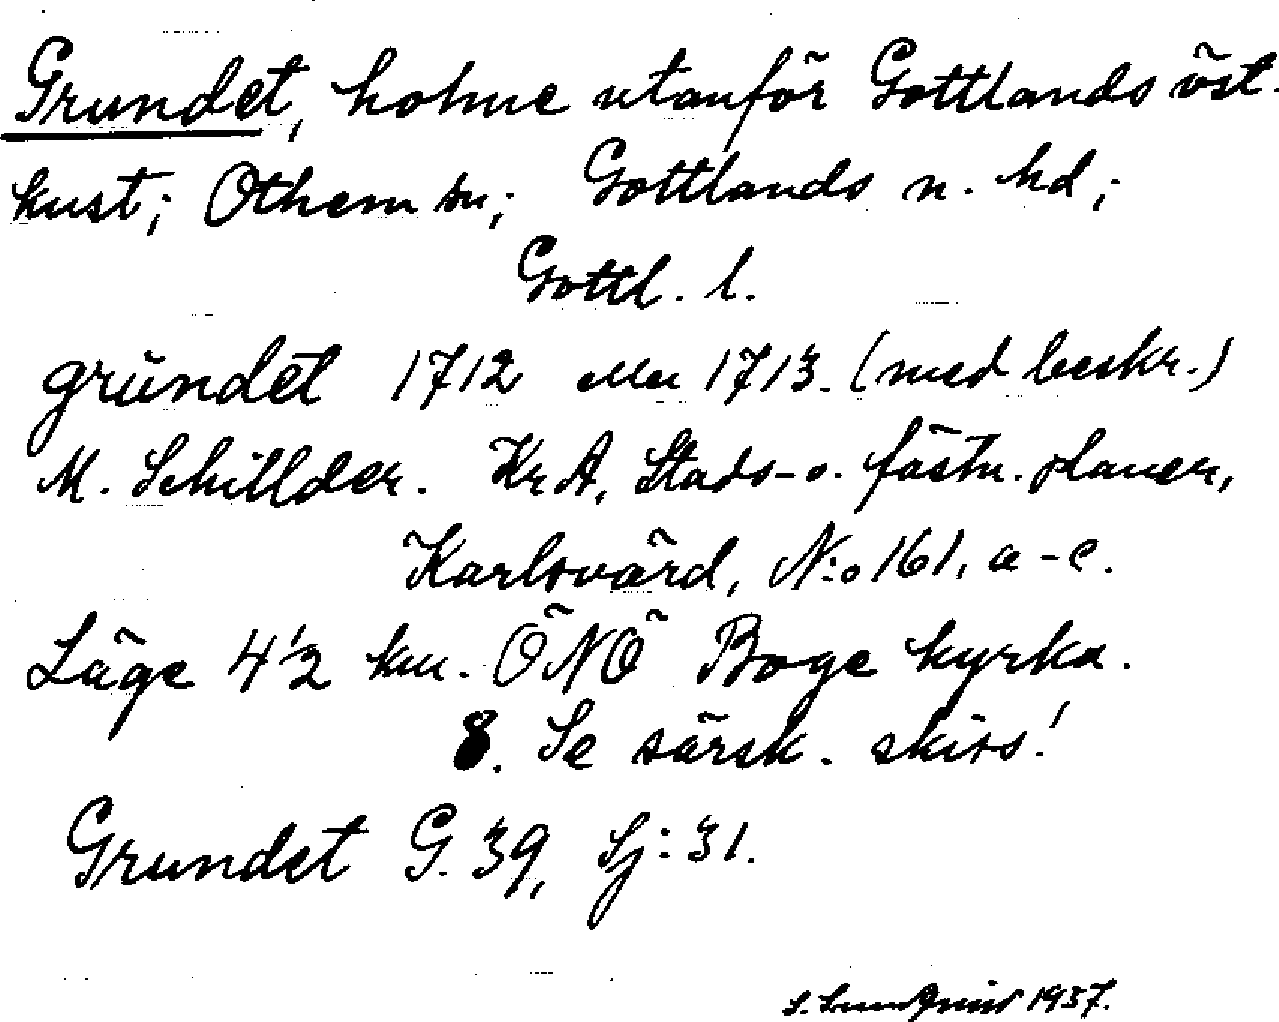 Grundet, holme utanför Gottlands öst-
kust; Othem sn; Gottlands n. hd;
Gottl. l.
grŭndet 1712 eller 1713. (med beskr.)
M. Schillder. KrA, Stads- o. fästn. planer,
Karlsvärd, N:o 161, a-c.
Läge 4 1/2 km. ÖNÖ Boge kyrka.
8. Se särsk. skiss!
Grundet G. 39, Sj: 31.
S. Lundqvist 1937.